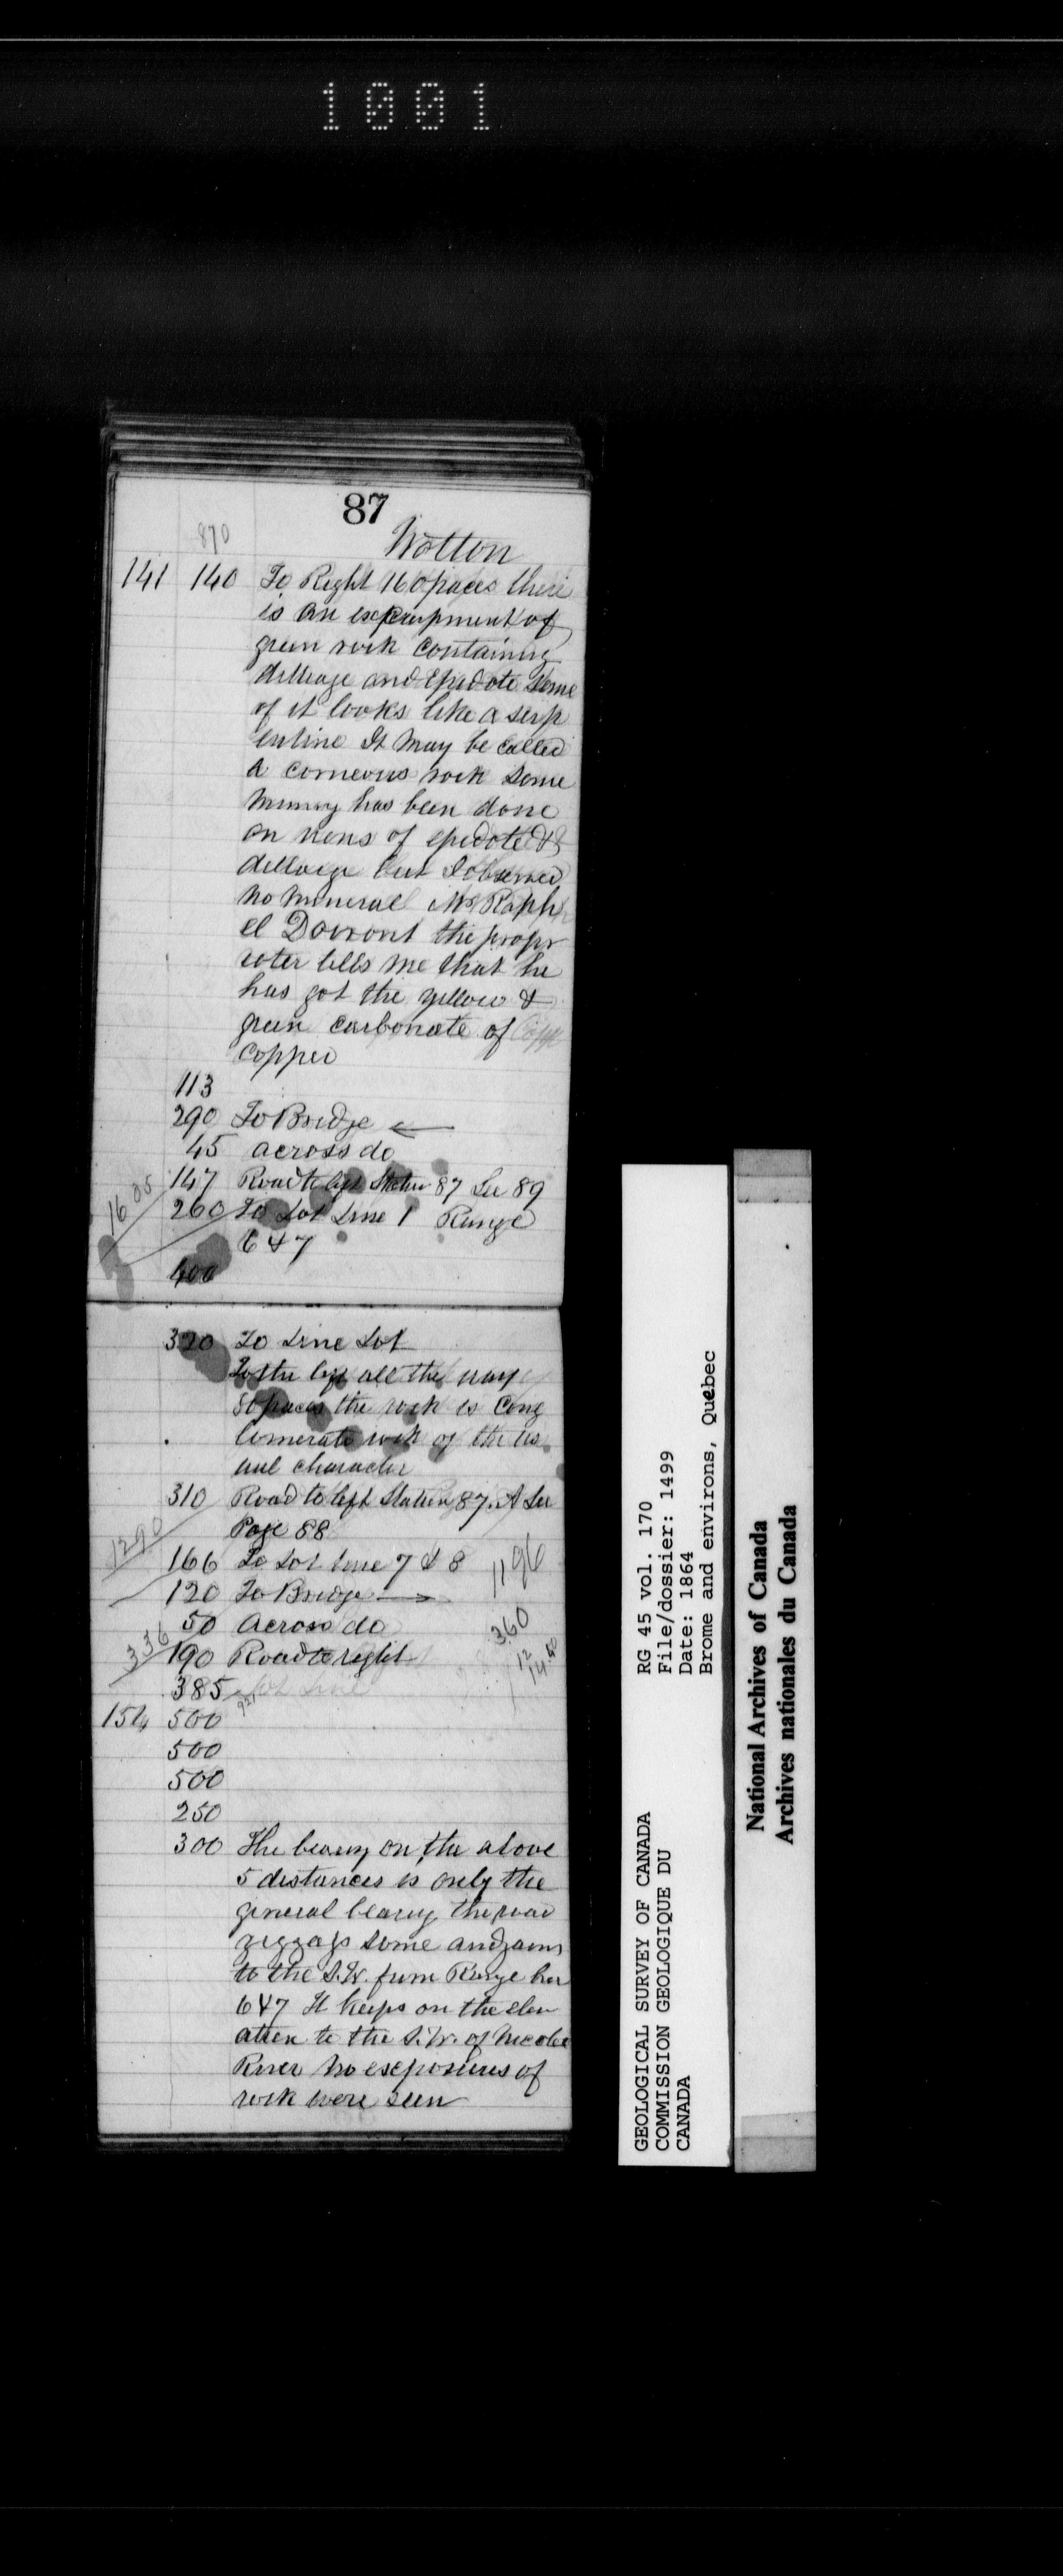 1001
87
870
Wotton
141 140 To Right 160 paces there
is an escarpment of
green rock containing
dillage and Epidote some
of it looks like a serp
entine It may be called
a corneous rock some
mining has been done
on viens of epidote &
dillaige but I observed
no mineral Mr Raph
el the propr
ieter tells me that he
has got the yellow &
green carbonate of Copp
copper
113
290 To Bridge ←
45 across do
147 Road to left Station 87 See 89
1605
260 To Lot Line 1 Range
6 & 7
400
320 To Line Lot
To the left all the way
80 paces the rock is Cong
lomerate rock of the us
ual character
310 Road to left Station 87. A See
Page 88
1290
166 To Lot line 7 & 8 1196
120 To Bridge →
50 Across do 360
336 190 Road to right 12
14.40
385 Lot Line
921
154 500
500
500
250
300 The bearing on the above
5 distances is only the
general bearing the road
zigzags some and
to the S.W. from Range
6 & 7 It keeps on the elev
ation to the S.W. of Nicolet
River No exposures of
rock were seen
GEOLOGICAL SURVEY OF CANADA
COMMISSION GEOLOGIQUE DU
CANADA
RG 45 vol. 170
File/dossier: 1499
Date: 1864
Brome and environs, Quebec
National Archives of Canada
Archives nationales du Canada